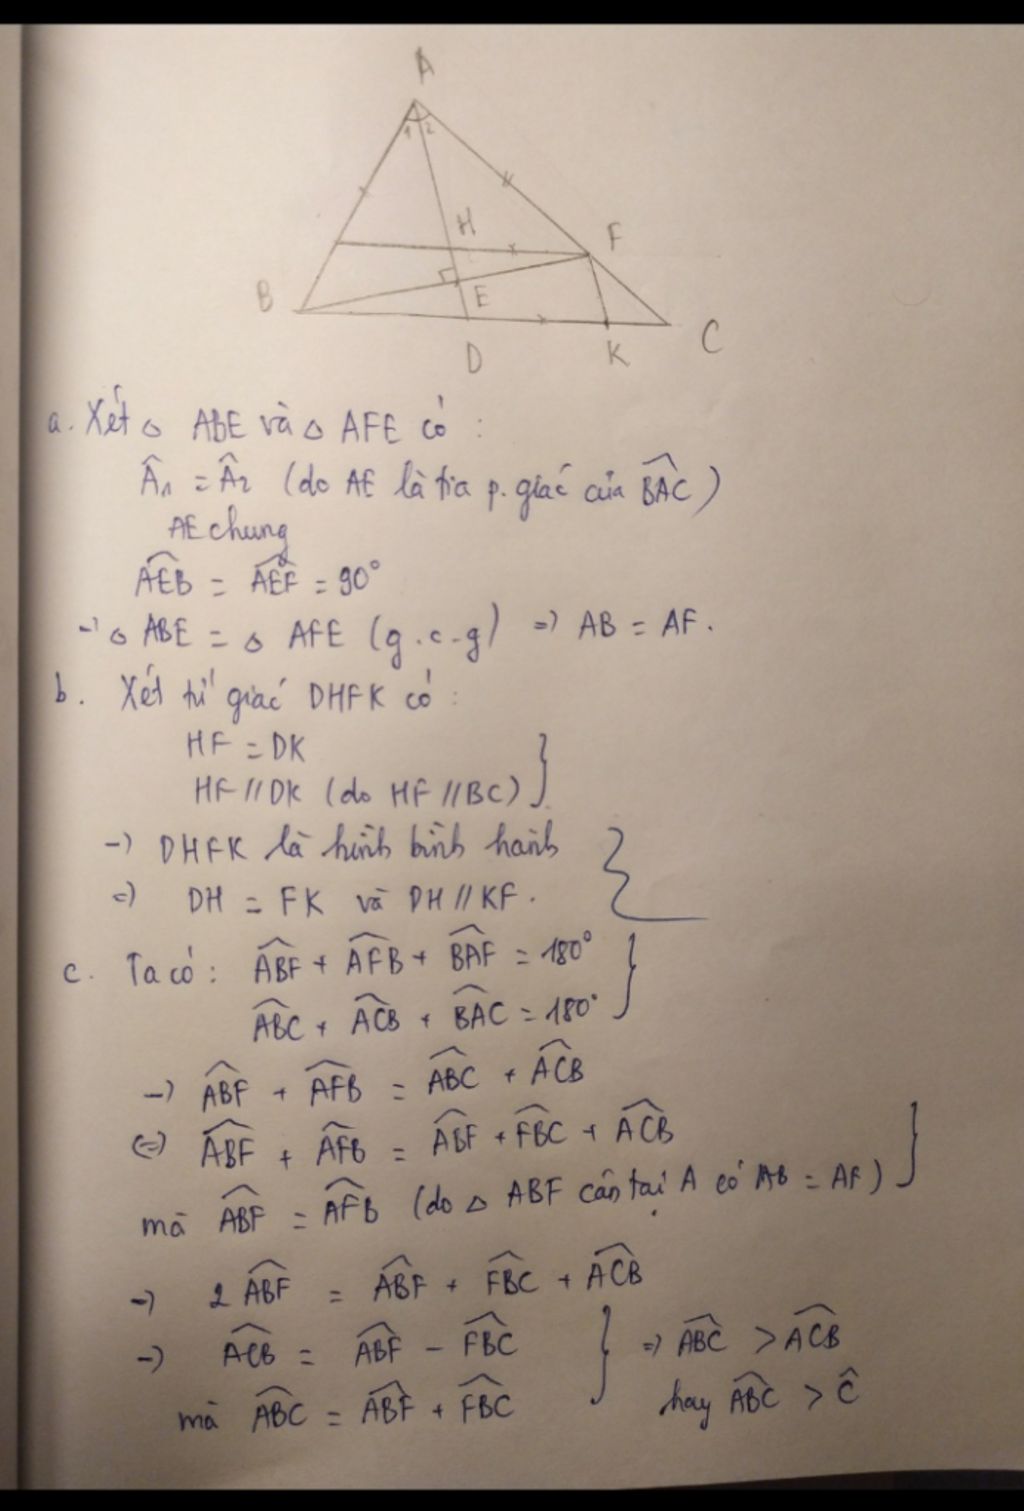 A
1 2
H
F
B
E
D
K
C
a. Xét △ ABE và △ AFE có :
Â₁ = Â₂ (do AE là tia p. giác của B̂AC)
AE chung
ÂEB = ÂEF = 90°
→ △ ABE = △ AFE (g.c-g) ⇒ AB = AF.
b. Xét tứ giác DHFK có :
HF = DK
HF // DK (do HF // BC) }
→ DHFK là hình bình hành
⇒ DH = FK và DH // KF.
c. Ta có : ÂBF + ÂFB + B̂AF = 180°
ÂBC + ÂCB + B̂AC = 180° }
→ ÂBF + ÂFB = ÂBC + ÂCB
(=) ÂBF + ÂFB = ÂBF + F̂BC + ÂCB
mà ÂBF = ÂFB (do △ ABF cân tại A có AB = AF) }
→ 2 ÂBF = ÂBF + F̂BC + ÂCB
→ ÂCB = ÂBF − F̂BC } ⇒ ÂBC > ÂCB
mà ÂBC = ÂBF + F̂BC hay ÂBC > Ĉ